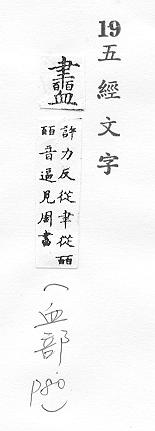 19五經文字
衋
許力反從聿從皕
皕音逼見周書
(血部 p80)